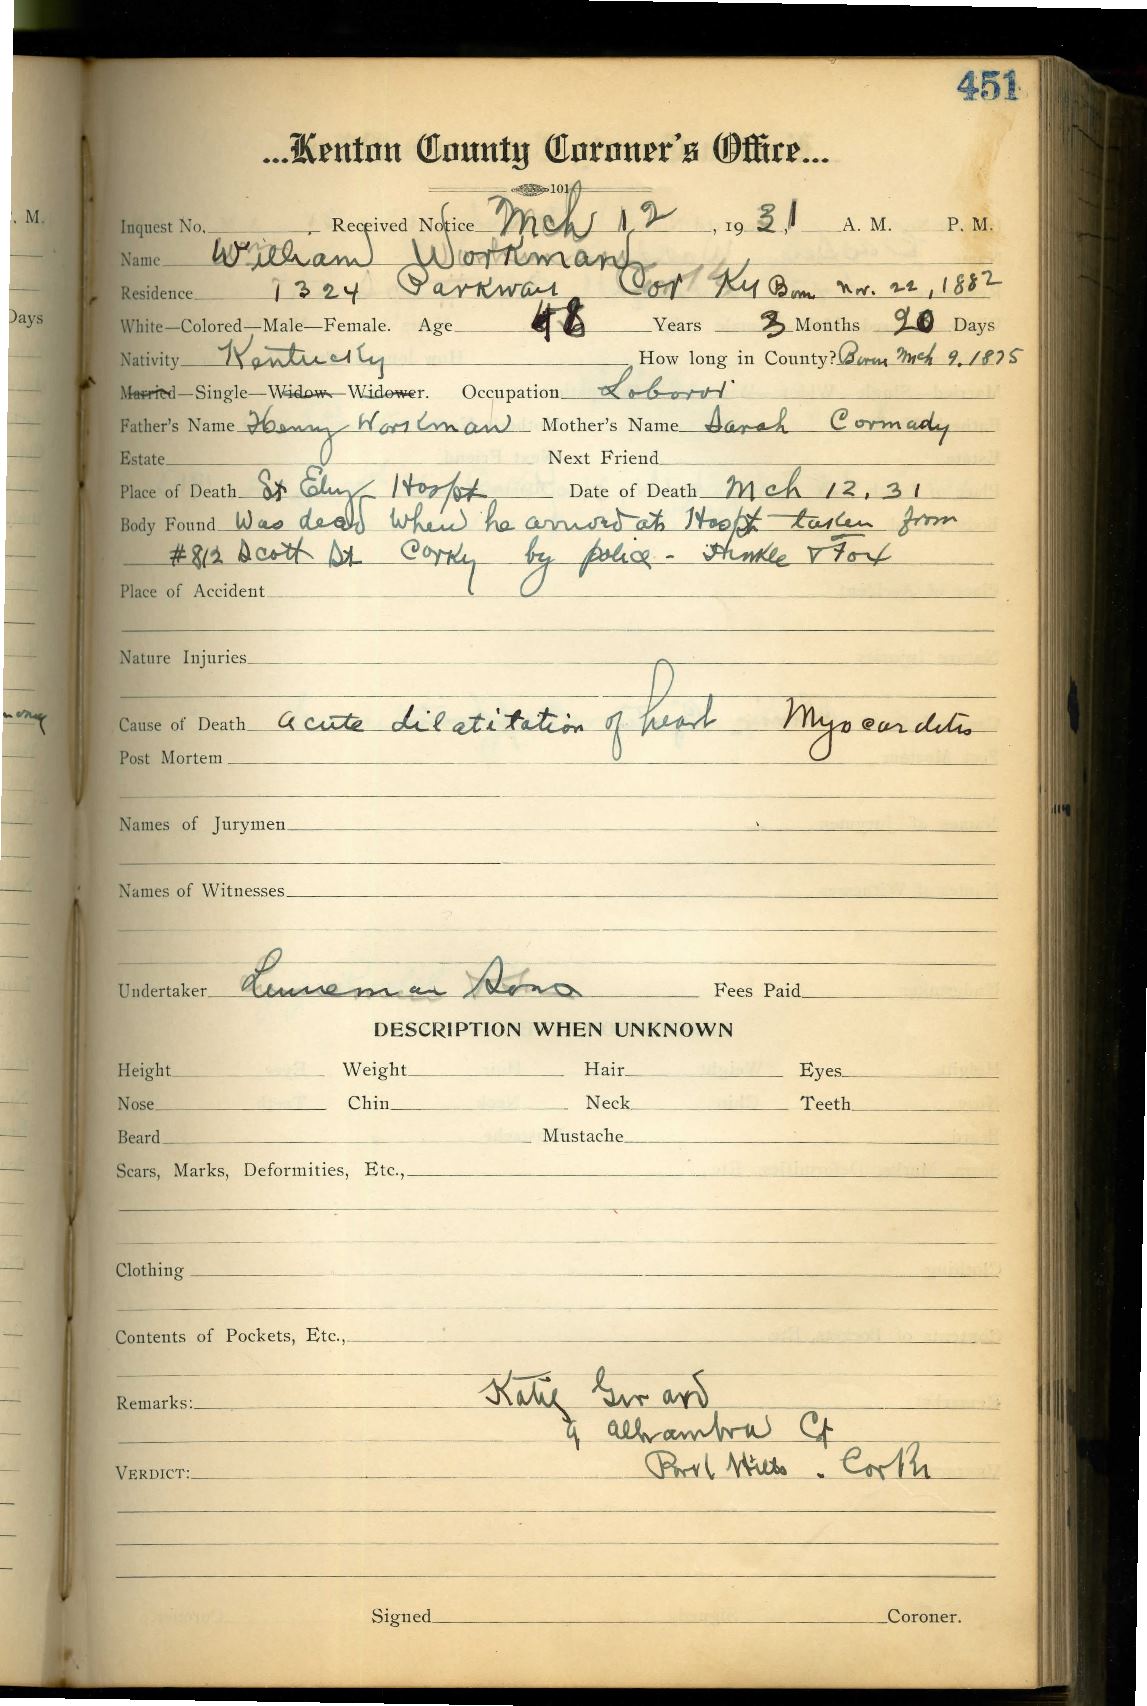 451
...Kenton County Coroner's Office...
101
Inquest No. Received Notice Mch 12, 1931 A. M. P. M.
Name William Workman
Residence 1324 Parkway Cov Ky Born Nov. 22, 1882
White—Colored—Male—Female. Age 48 Years 3 Months 20 Days
Nativity Kentucky How long in County? Born Mch 9. 1875
Married—Single—Widow—Widower. Occupation Laboror
Father's Name Henry Workman Mother's Name Sarah Cormady
Estate Next Friend
Place of Death St Eliz Hospt Date of Death Mch 12, 31
Body Found Was dead when he arrived at Hospt taken from
#812 Scott St Cov Ky by police - Hinkle & Fox
Place of Accident
Nature Injuries
Cause of Death acute dilatitation of heart Myocarditis
Post Mortem
Names of Jurymen
Names of Witnesses
Undertaker Linneman Sons Fees Paid
DESCRIPTION WHEN UNKNOWN
Height Weight Hair Eyes
Nose Chin Neck Teeth
Beard Mustache
Scars, Marks, Deformities, Etc.,
Clothing
Contents of Pockets, Etc.,
Remarks: Katie Girard
9 Alhambra Ct
VERDICT: Park Hills. Cov Ky
Signed Coroner.
. M.
Days